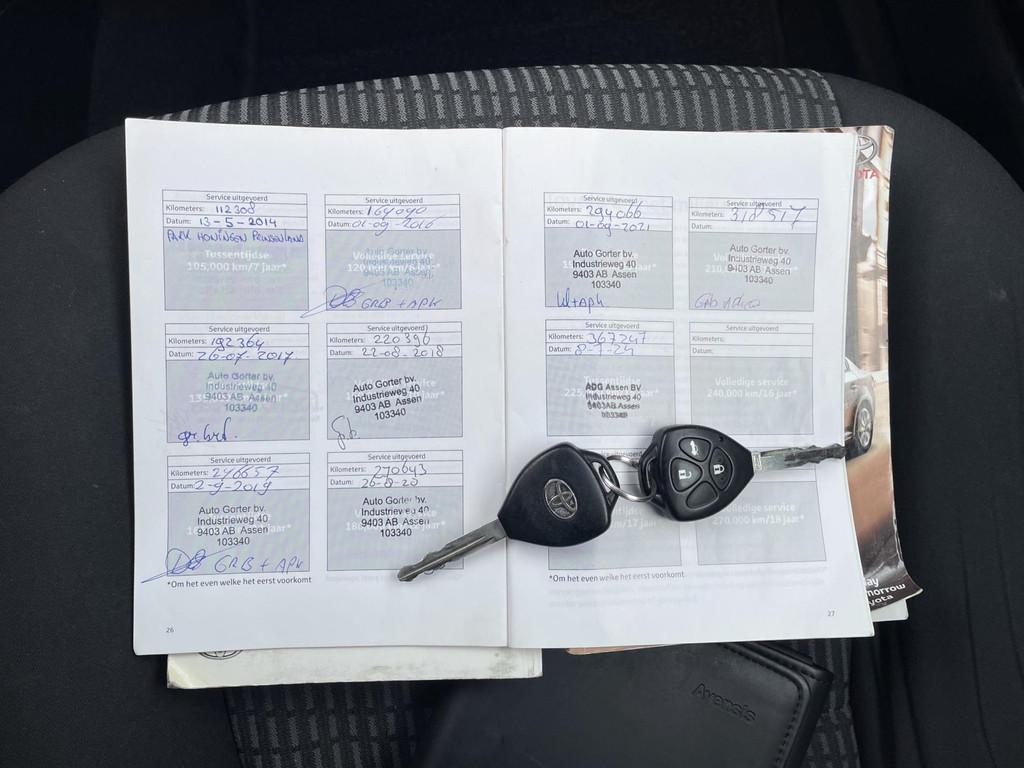 Service uitgevoerd
Kilometers: 112308
Datum: 13-5-2014
PARK HONINGEN PRINSENLAND
Tussentijdse
105,000 km/7 jaar*
Service uitgevoerd
Kilometers: 164040
Datum: 01-09-2016
Auto Gorter bv.
Industrieweg 40
9403 AB Assen
103340
Volledige service
120,000 km/8 jaar*
GRB + APK
Service uitgevoerd
Kilometers: 192364
Datum: 26-07-2017
Auto Gorter bv.
Industrieweg 40
9403 AB Assen
103340
Service uitgevoerd
Kilometers: 220396
Datum: 22-08-2018
Auto Gorter bv.
Industrieweg 40
9403 AB Assen
103340
Service uitgevoerd
Kilometers: 246657
Datum: 2-9-2019
Auto Gorter bv.
Industrieweg 40
9403 AB Assen
103340
GRB + APK
Service uitgevoerd
Kilometers: 270643
Datum: 26-8-20
Auto Gorter bv.
Industrieweg 40
9403 AB Assen
103340
*Om het even welke het eerst voorkomt
26
Service uitgevoerd
Kilometers: 294066
Datum: 01-09-2021
Auto Gorter bv.
Industrieweg 40
9403 AB Assen
103340
Service uitgevoerd
Kilometers: 318517
Datum:
Auto Gorter bv.
Industrieweg 40
9403 AB Assen
103340
Service uitgevoerd
Kilometers: 367247
Datum: 8-7-24
ADG Assen BV
Industrieweg 40
9403AB Assen
103340
Service uitgevoerd
Kilometers:
Datum:
Volledige service
240,000 km/16 jaar*
Volledige service
270,000 km/18 jaar*
*Om het even welke het eerst voorkomt
27
Avensis